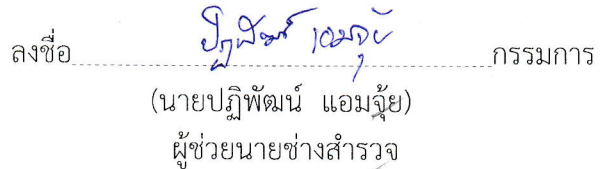 ลงชื่อ ปฏิพัฒน์ แอมจุ้ย กรรมการ
(นายปฏิพัฒน์ แอมจุ้ย)
ผู้ช่วยนายช่างสำรวจ